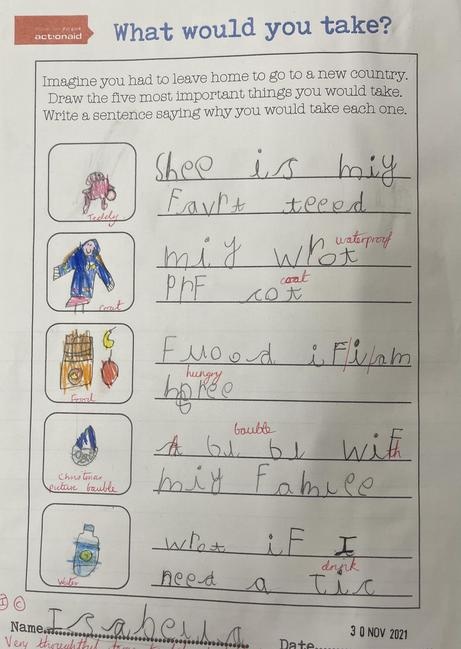 actionaid
What would you take?
Imagine you had to leave home to go to a new country.
Draw the five most important things you would take.
Write a sentence saying why you would take each one.
Shee is miy
Teddy
Favrt teeed
waterproof
miy wrot
coat
Coat
PrF cot
Fuood if/i/am
hungry
Food
horee
bauble
A bu bl with
Christmas
picture bauble
miy Famiee
wrot iF I
drink
Water
need a Tic
Name Isabella
30 NOV 2021
Very thoughtful
Date